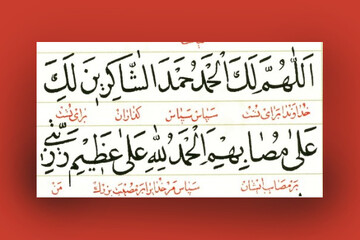 اَللّٰهُمَّ لَكَ الْحَمْدُ حَمْدَ الشَّاكِرِينَ لَكَ
خداوندا برای تست سپاس سپاس گذاران برای تست
عَلىٰ مُصَابِهِمْ اَلْحَمْدُ لِلّٰهِ عَلىٰ عَظِيمِ رَزِيَّتِي
بر مصاب ایشان سپاس مر خدا برابر مصیبت بزرگ من